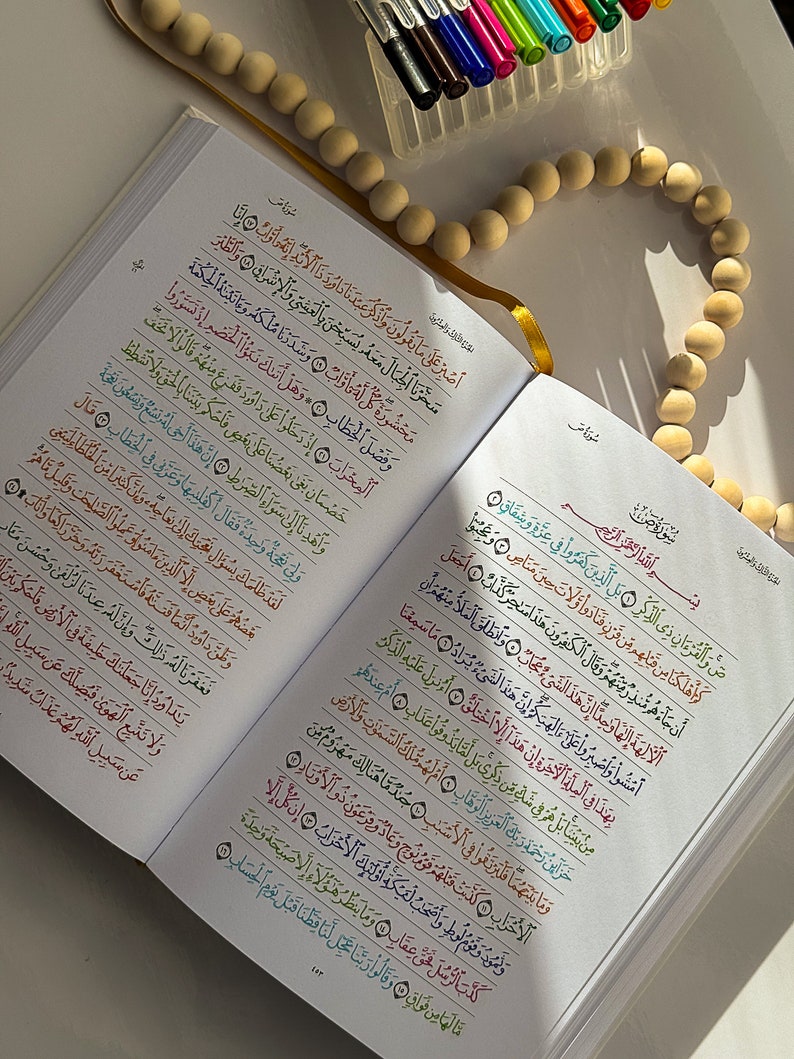 سُورَةُ صٓ
الجُزْءُ الثَّالِثُ وَالعِشْرُونَ
سُورَةُ صٓ
بِسْمِ ٱللَّهِ ٱلرَّحْمَٰنِ ٱلرَّحِيمِ
صٓۚ وَٱلْقُرْءَانِ ذِى ٱلذِّكْرِ ١ بَلِ ٱلَّذِينَ كَفَرُوا۟ فِى عِزَّةٍ وَشِقَاقٍ ٢
كَمْ أَهْلَكْنَا مِن قَبْلِهِم مِّن قَرْنٍ فَنَادَوا۟ وَّلَاتَ حِينَ مَنَاصٍ ٣ وَعَجِبُوٓا۟
أَن جَآءَهُم مُّنذِرٌ مِّنْهُمْۖ وَقَالَ ٱلْكَٰفِرُونَ هَٰذَا سَٰحِرٌ كَذَّابٌ ٤ أَجَعَلَ
ٱلْءَالِهَةَ إِلَٰهًا وَٰحِدًاۖ إِنَّ هَٰذَا لَشَىْءٌ عُجَابٌ ٥ وَٱنطَلَقَ ٱلْمَلَأُ مِنْهُمْ أَنِ
ٱمْشُوا۟ وَٱصْبِرُوا۟ عَلَىٰٓ ءَالِهَتِكُمْۖ إِنَّ هَٰذَا لَشَىْءٌ يُرَادُ ٦ مَا سَمِعْنَا
بِهَٰذَا فِى ٱلْمِلَّةِ ٱلْءَاخِرَةِ إِنْ هَٰذَآ إِلَّا ٱخْتِلَٰقٌ ٧ أَءُنزِلَ عَلَيْهِ ٱلذِّكْرُ
مِنۢ بَيْنِنَاۚ بَلْ هُمْ فِى شَكٍّ مِّن ذِكْرِىۖ بَل لَّمَّا يَذُوقُوا۟ عَذَابِ ٨ أَمْ عِندَهُمْ
خَزَآئِنُ رَحْمَةِ رَبِّكَ ٱلْعَزِيزِ ٱلْوَهَّابِ ٩ أَمْ لَهُم مُّلْكُ ٱلسَّمَٰوَٰتِ وَٱلْأَرْضِ
وَمَا بَيْنَهُمَاۖ فَلْيَرْتَقُوا۟ فِى ٱلْأَسْبَٰبِ ١٠ جُندٌ مَّا هُنَالِكَ مَهْزُومٌ مِّنَ
ٱلْأَحْزَابِ ١١ كَذَّبَتْ قَبْلَهُمْ قَوْمُ نُوحٍ وَعَادٌ وَفِرْعَوْنُ ذُو ٱلْأَوْتَادِ ١٢
وَثَمُودُ وَقَوْمُ لُوطٍ وَأَصْحَٰبُ لْـَٔيْكَةِۚ أُو۟لَٰٓئِكَ ٱلْأَحْزَابُ ١٣ إِن كُلٌّ إِلَّا
كَذَّبَ ٱلرُّسُلَ فَحَقَّ عِقَابِ ١٤ وَمَا يَنظُرُ هَٰٓؤُلَآءِ إِلَّا صَيْحَةً وَٰحِدَةً
مَّا لَهَا مِن فَوَاقٍ ١٥ وَقَالُوا۟ رَبَّنَا عَجِّل لَّنَا قِطَّنَا قَبْلَ يَوْمِ ٱلْحِسَابِ ١٦
٤٥٣
الجُزْءُ الثَّالِثُ وَالعِشْرُونَ
سُورَةُ صٓ
ٱصْبِرْ عَلَىٰ مَا يَقُولُونَ وَٱذْكُرْ عَبْدَنَا دَاوُۥدَ ذَا ٱلْأَيْدِۖ إِنَّهُۥٓ أَوَّابٌ ١٧ إِنَّا
سَخَّرْنَا ٱلْجِبَالَ مَعَهُۥ يُسَبِّحْنَ بِٱلْعَشِىِّ وَٱلْإِشْرَاقِ ١٨ وَٱلطَّيْرَ
مَحْشُورَةًۖ كُلٌّ لَّهُۥٓ أَوَّابٌ ١٩ وَشَدَدْنَا مُلْكَهُۥ وَءَاتَيْنَٰهُ ٱلْحِكْمَةَ
وَفَصْلَ ٱلْخِطَابِ ٢٠ ۞ وَهَلْ أَتَىٰكَ نَبَؤُا۟ ٱلْخَصْمِ إِذْ تَسَوَّرُوا۟
ٱلْمِحْرَابَ ٢١ إِذْ دَخَلُوا۟ عَلَىٰ دَاوُۥدَ فَفَزِعَ مِنْهُمْۖ قَالُوا۟ لَا تَخَفْۖ
خَصْمَانِ بَغَىٰ بَعْضُنَا عَلَىٰ بَعْضٍ فَٱحْكُم بَيْنَنَا بِٱلْحَقِّ وَلَا تُشْطِطْ
وَٱهْدِنَآ إِلَىٰ سَوَآءِ ٱلصِّرَٰطِ ٢٢ إِنَّ هَٰذَآ أَخِى لَهُۥ تِسْعٌ وَتِسْعُونَ نَعْجَةً
وَلِىَ نَعْجَةٌ وَٰحِدَةٌ فَقَالَ أَكْفِلْنِيهَا وَعَزَّنِى فِى ٱلْخِطَابِ ٢٣ قَالَ
لَقَدْ ظَلَمَكَ بِسُؤَالِ نَعْجَتِكَ إِلَىٰ نِعَاجِهِۦۖ وَإِنَّ كَثِيرًا مِّنَ ٱلْخُلَطَآءِ لَيَبْغِى
بَعْضُهُمْ عَلَىٰ بَعْضٍ إِلَّا ٱلَّذِينَ ءَامَنُوا۟ وَعَمِلُوا۟ ٱلصَّٰلِحَٰتِ وَقَلِيلٌ مَّا هُمْۗ
وَظَنَّ دَاوُۥدُ أَنَّمَا فَتَنَّٰهُ فَٱسْتَغْفَرَ رَبَّهُۥ وَخَرَّ رَاكِعًا وَأَنَابَ ۩ ٢٤
فَغَفَرْنَا لَهُۥ ذَٰلِكَۖ وَإِنَّ لَهُۥ عِندَنَا لَزُلْفَىٰ وَحُسْنَ مَـَٔابٍ
يَٰدَاوُۥدُ إِنَّا جَعَلْنَٰكَ خَلِيفَةً فِى ٱلْأَرْضِ فَٱحْكُم بَيْنَ
وَلَا تَتَّبِعِ ٱلْهَوَىٰ فَيُضِلَّكَ عَن سَبِيلِ ٱللَّهِۚ
عَن سَبِيلِ ٱللَّهِ لَهُمْ عَذَابٌ شَدِيدٌۢ